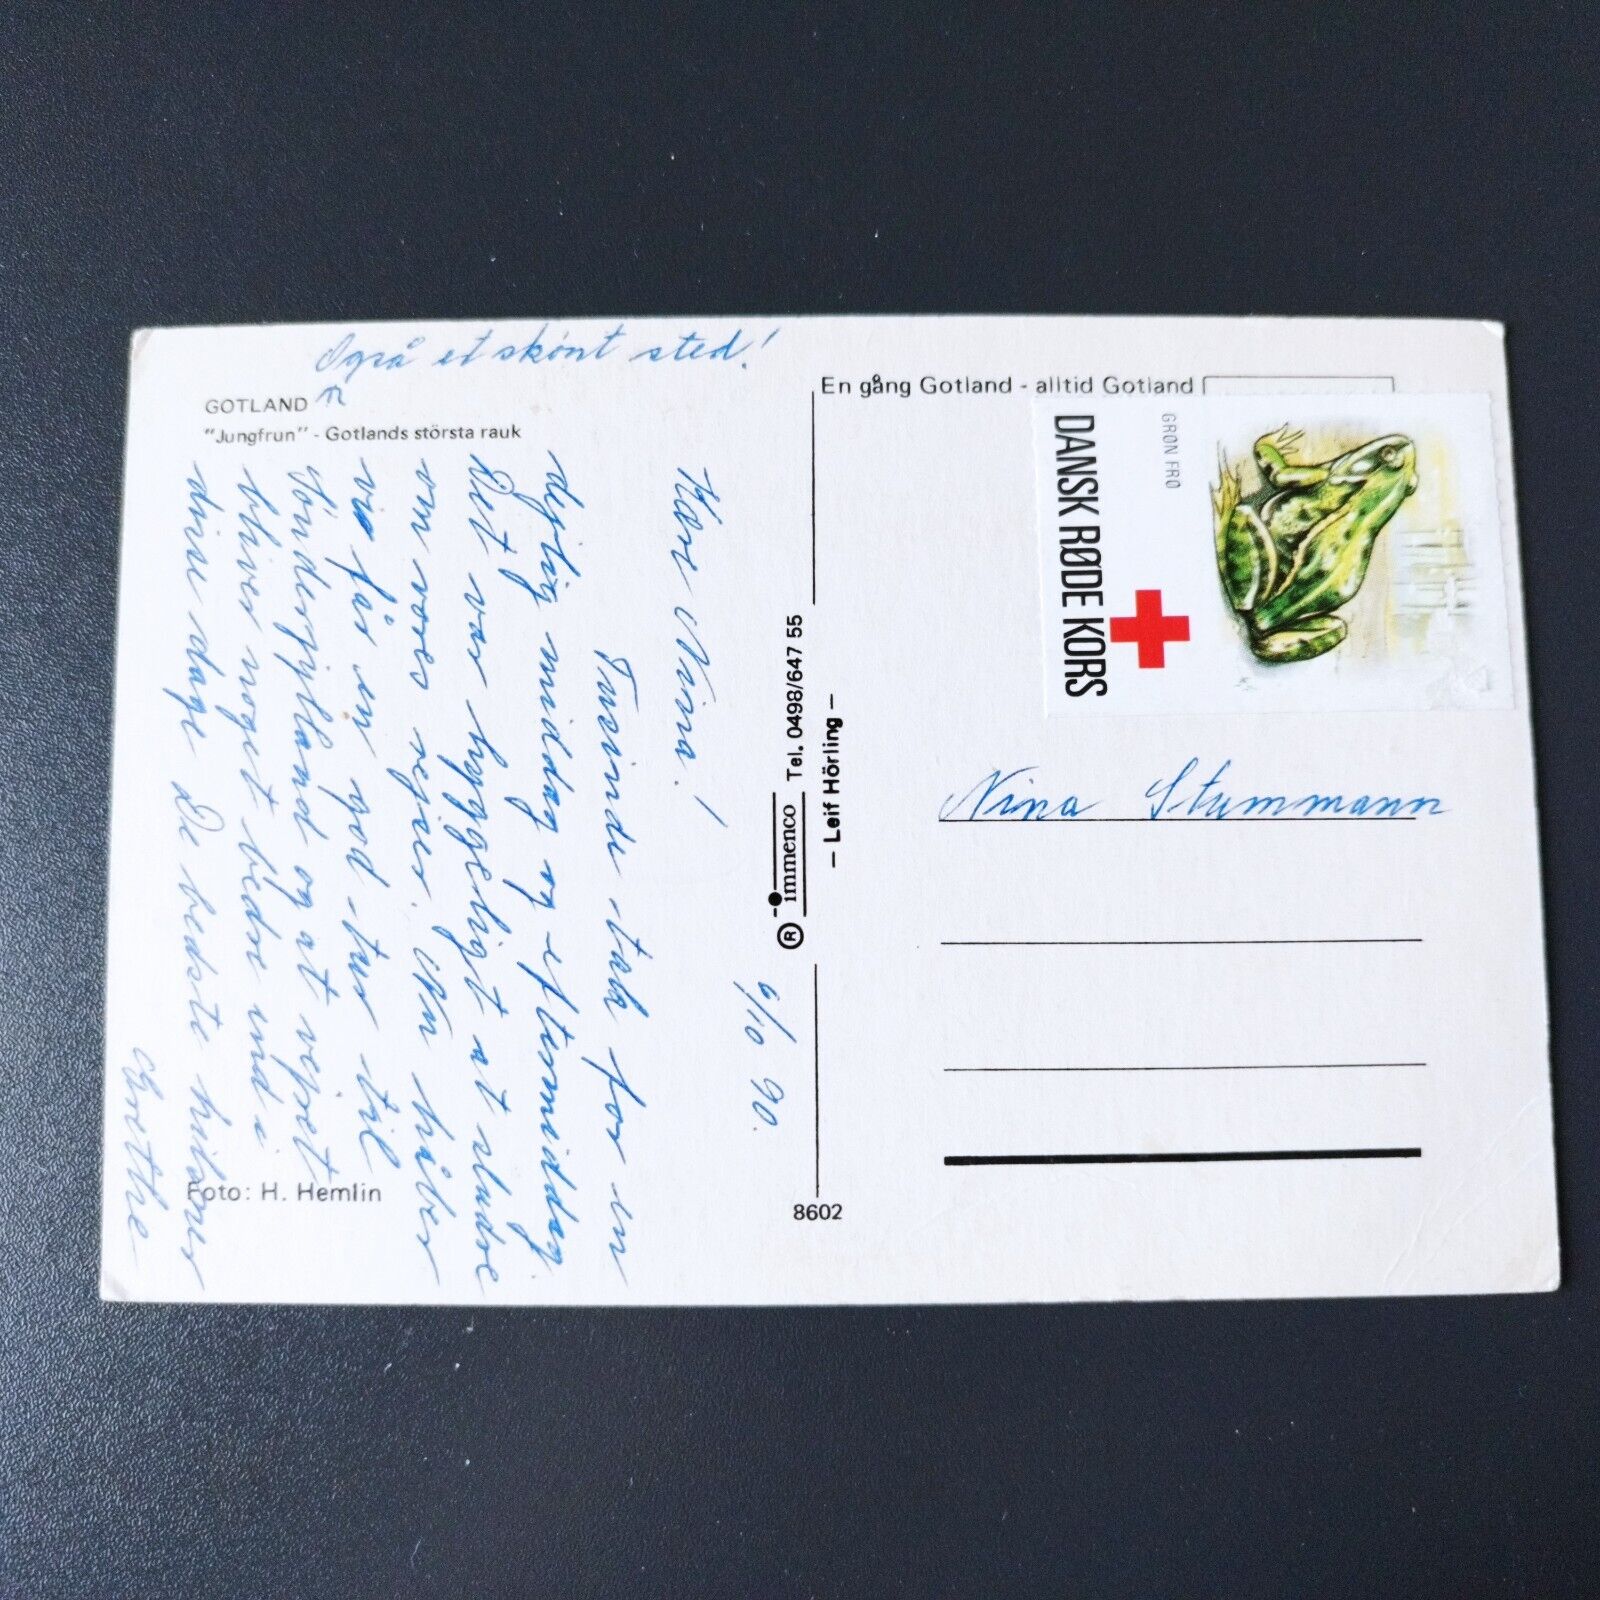 Også et skønt sted!
GOTLAND
"Jungfrun" - Gotlands största rauk
6/10 90.
Kære Nina!
Tusinde tak for en
dejlig middag og eftermiddag.
Det var hyggeligt at sludre
om vores rejser. Nu håber
vi får en god tur til
Sønderjylland og at vejret
bliver noget bedre end i
disse dage. De bedste hilsner
Grethe
Foto: H. Hemlin
8602
® immenco Tel. 0498/647 55
– Leif Hörling –
En gång Gotland - alltid Gotland
DANSK RØDE KORS
GRØN FRØ
Nina Stummann